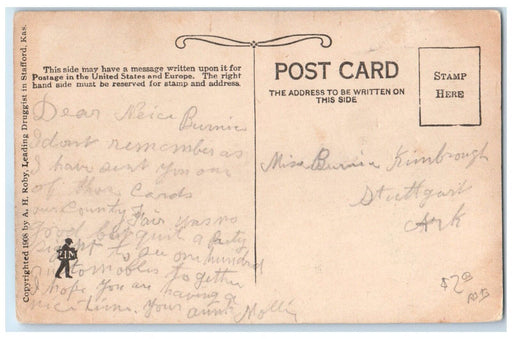 Copyrighted 1908 by A. H. Roby, Leading Druggist in Stafford, Kas.
This side may have a message written upon it for
Postage in the United States and Europe. The right
hand side must be reserved for stamp and address.
Dear Neice Burnice
I dont remember as
I have sent you one
of these Cards
our County Fair was no
good but quit a Party
sight to see one hundred
automobles to gether
I hope you are having a
nice time. Your aunt Molli
ZIM
POST CARD
THE ADDRESS TO BE WRITTEN ON
THIS SIDE
STAMP
HERE
Miss Burnice Kimbrough
Stuttgart
Ark
$2